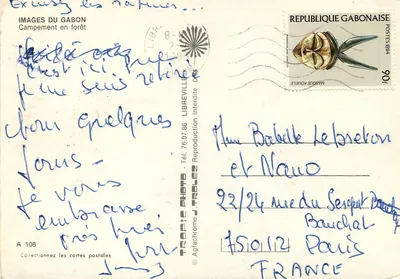 Excusez les ratures...
IMAGES DU GABON
Campement en forêt
C'est ici que
je me suis retirée
quelques
jours.
Je vous
embrasse
très fort
A 108
Collectionnez les cartes postales
TROPIC PHOTO - Tél. 76.07.86 LIBREVILLE
© Agfachrome J TROLEZ Reproduction interdite
LIBREV
REPUBLIQUE GABONAISE
POSTES 1984
90F
Mme Babette Lebreton
et Nano
22/24 rue du Sergent
Bauchat
75012 Paris
FRANCE